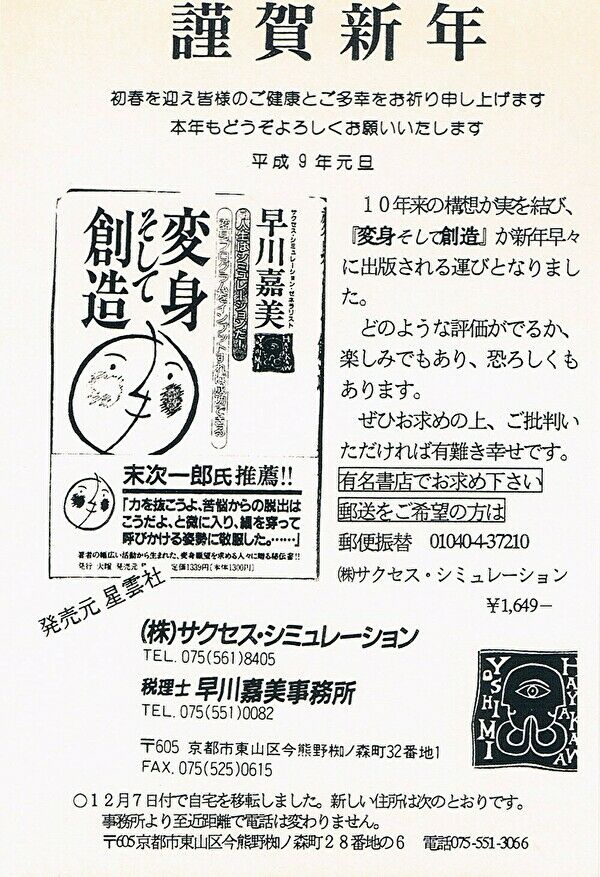 謹賀新年
初春を迎え皆様のご健康とご多幸をお祈り申し上げます
本年もどうぞよろしくお願いいたします
平成9年元旦
サクセス・シミュレーション・ゼネラリスト
早川嘉美
人生はシミュレーションだ!!
変身
そして
創造
末次一郎氏推薦!!
「力を抜こうよ、苦悩からの脱出は
こうだよ、と微に入り、細を穿って
呼びかける姿勢に敬服した。……」
著者の幅広い活動から生まれた、変身願望を求める人々に贈る秘伝書!!
定価1339円[本体1300円]
10年来の構想が実を結び、
『変身そして創造』が新年早々
に出版される運びとなりまし
た。
どのような評価がでるか、
楽しみでもあり、恐ろしくも
あります。
ぜひお求めの上、ご批判い
ただければ有難き幸せです。
有名書店でお求め下さい
郵送をご希望の方は
郵便振替 01040-4-37210
㈱サクセス・シミュレーション
¥1,649−
発売元 星雲社
(株)サクセス・シミュレーション
TEL. 075(561)8405
税理士 早川嘉美事務所
TEL. 075(551)0082
〒605 京都市東山区今熊野椥ノ森町32番地1
FAX. 075(525)0615
YOSHIMI
HAYAKAWA
○12月7日付で自宅を移転しました。新しい住所は次のとおりです。
事務所より至近距離で電話は変わりません。
〒605京都市東山区今熊野椥ノ森町28番地の6 電話075-551-3066